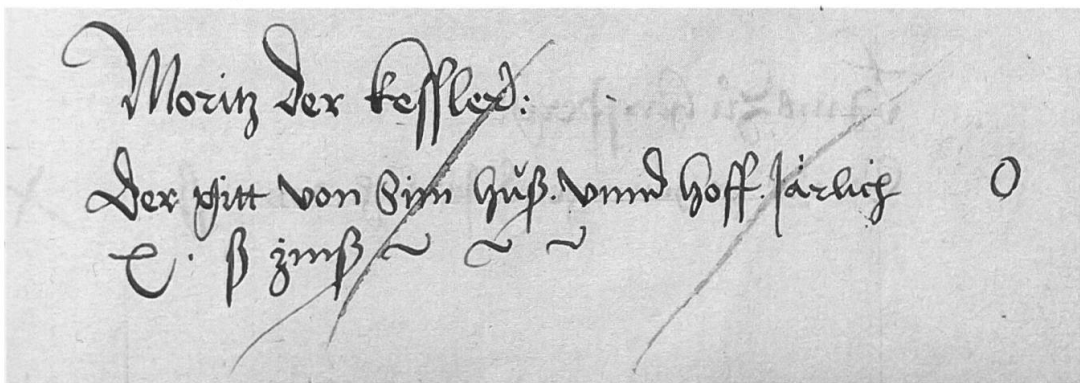 Moritz der kessler:
Der gitt von sim huß. vnnd hoff. Järlich O
X. ß zinß